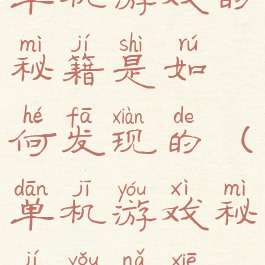 单机游戏的
mì jí shì rú
秘籍是如
hé fā xiàn de
何发现的（
dān jī yóu xì mì
单机游戏秘
jí yǒu nǎ xiē